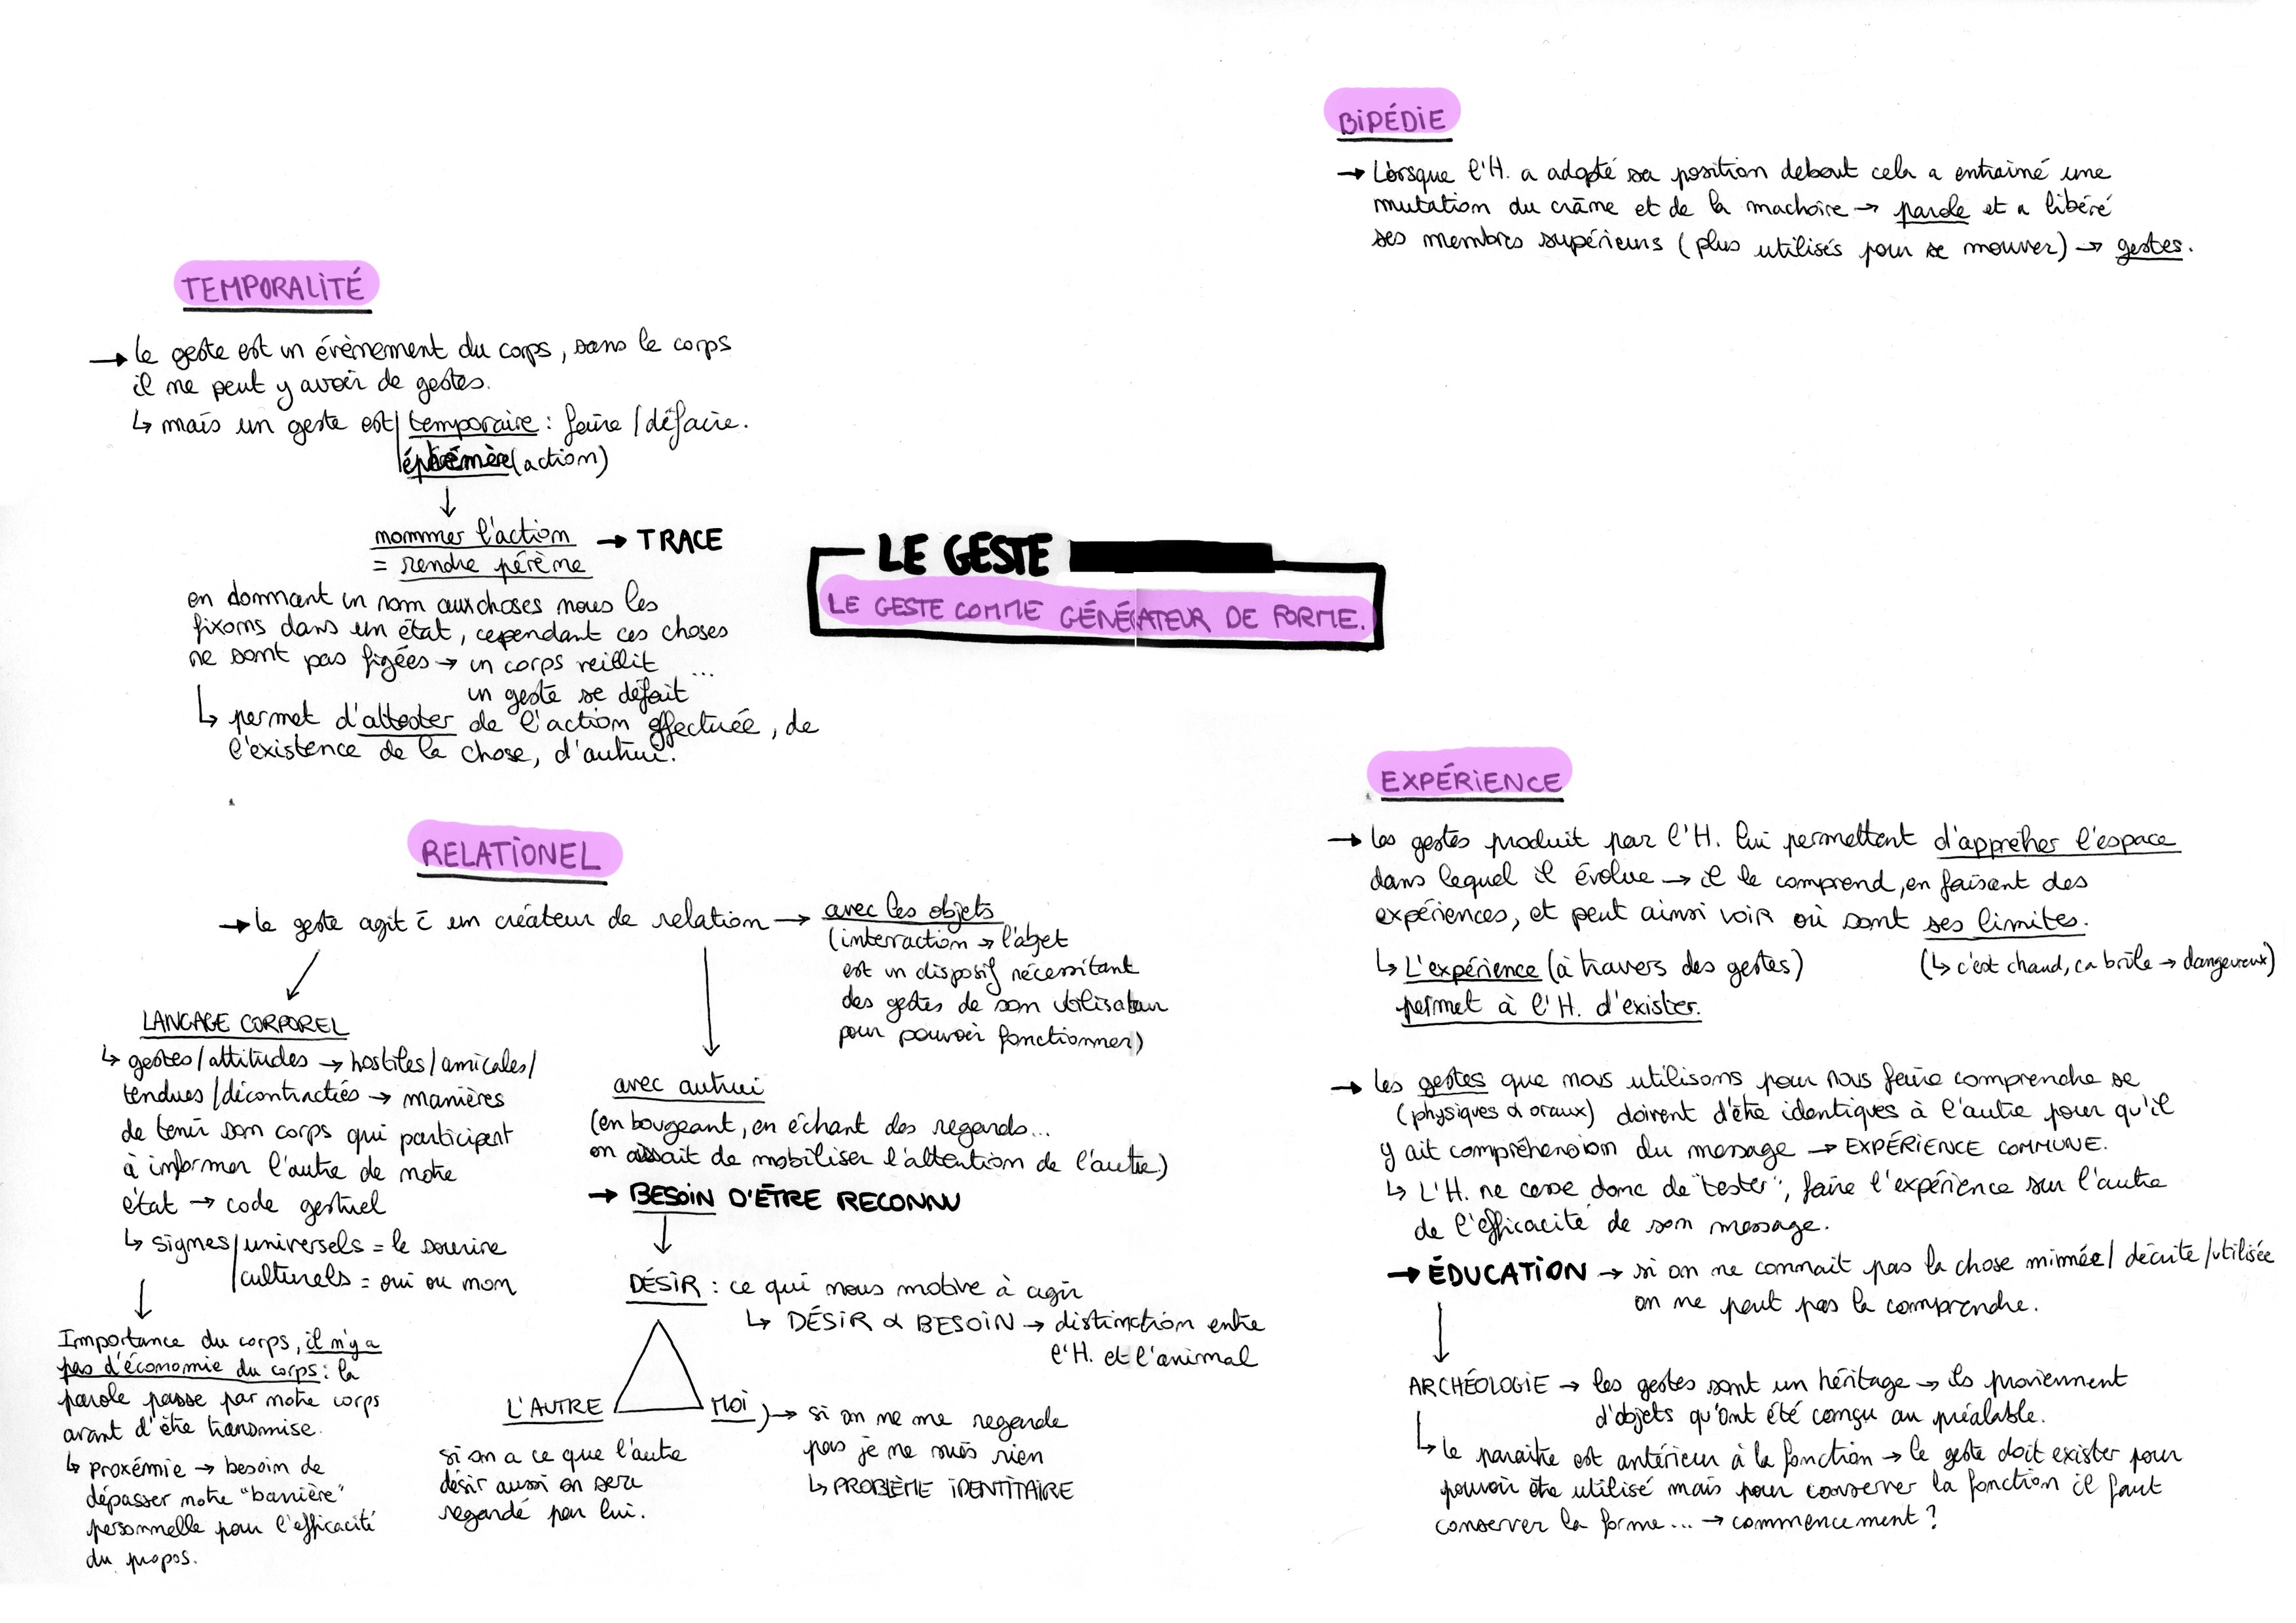 BIPÉDIE
→ Lorsque l'H. a adopté sa position debout cela a entrainé une
mutation du crâne et de la machoire → parole et a libéré
ses membres supérieurs (plus utilisés pour se mouver) → gestes.
TEMPORALITÉ
→ le geste est un évènement du corps, sans le corps
il ne peut y avoir de gestes.
↳ mais un geste est temporaire : faire / défaire.
éphémère (action)
↓
nommer l'action → TRACE
= rendre pérène
en donnant un nom aux choses nous les
fixons dans un état, cependant ces choses
ne sont pas figées → un corps vieillit
un geste se défait ...
↳ permet d'attester de l'action effectuée, de
l'existence de la chose, d'autrui.
LE GESTE
LE GESTE COMME GÉNÉRATEUR DE FORME.
RELATIONEL
→ le geste agit c̄ un créateur de relation → avec les objets
(interaction → l'objet
est un disposif nécessitant
des gestes de son utilisateur
pour pouvoir fonctionner)
LANGAGE CORPOREL
↳ gestes/attitudes → hostiles/amicales/
tendues/décontractés → manières
de tenir son corps qui participent
à informer l'autre de notre
état → code gestuel
↳ signes universels = le sourire
culturels = oui ou non
↓
Importance du corps, il n'y a
pas d'économie du corps : la
parole passe par notre corps
avant d'être transmise.
↳ proxémie → besoin de
dépasser notre "barrière"
personnelle pour l'efficacité
du propos.
avec autrui
(en bougeant, en échant des regards...
on essait de mobiliser l'attention de l'autre)
→ BESOIN D'ÊTRE RECONNU
↓
DÉSIR : ce qui nous motive à agir
↳ DÉSIR α BESOIN → distinction entre
l'H. et l'animal
L'AUTRE MOI
si on a ce que l'autre
désir aussi on sera
regardé par lui.
→ si on ne me regarde
pas je ne suis rien
↳ PROBLÈME IDENTITAIRE
EXPÉRIENCE
→ les gestes produit par l'H. lui permettent d'appréher l'espace
dans lequel il évolue → il le comprend, en faisant des
expériences, et peut ainsi voir où sont ses limites.
↳ L'expérience (à travers des gestes) (↳ c'est chaud, ca brûle → dangereux)
permet à l'H. d'exister.
→ les gestes que nous utilisons pour nous faire comprendre se
(physiques α oraux) doivent d'être identiques à l'autre pour qu'il
y ait compréhension du message → EXPÉRIENCE COMMUNE.
↳ L'H. ne cesse donc de "tester", faire l'expérience sur l'autre
de l'efficacité de son message.
→ ÉDUCATION → si on ne connait pas la chose mimmée / décrite / utilisée
on ne peut pas la comprendre.
↓
ARCHÉOLOGIE → les gestes sont un héritage → ils proviennent
d'objets qu'ont été conçu au préalable.
↳ le paraitre est antérieur à la fonction → le geste doit exister pour
pouvoir être utilisé mais pour conserver la fonction il faut
conserver la forme... → commencement ?